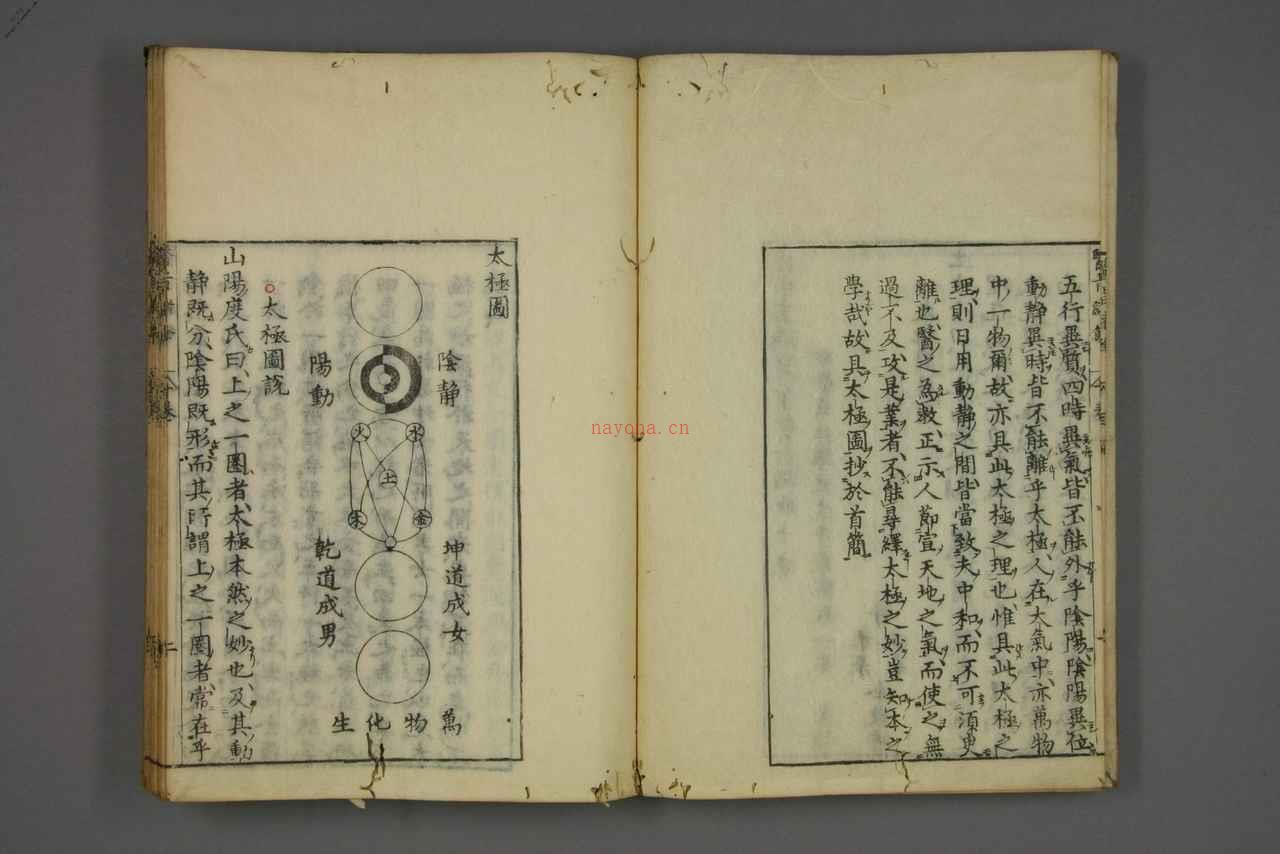 五行異質四時異氣皆不能外乎陰陽陰陽異位
動靜異時皆不能離乎太極人在太氣中亦萬物
中一物爾故亦具此太極之理也惟具此太極之
理則日用動靜之間皆當致夫中和而不可須臾
離也醫之為教正示人節宣天地之氣而使之無
過不及攻是業者不能尋繹太極之妙豈知本之
學哉故具太極圖抄於首簡
太極圖
陰靜
陽動
水
火
土
金
木
坤道成女
乾道成男
萬物化生
太極圖說
山陽度氏曰上之一圈者太極本然之妙也及其動
静既分陰陽既形而其所謂上之一圈者常在乎
nayona.cn